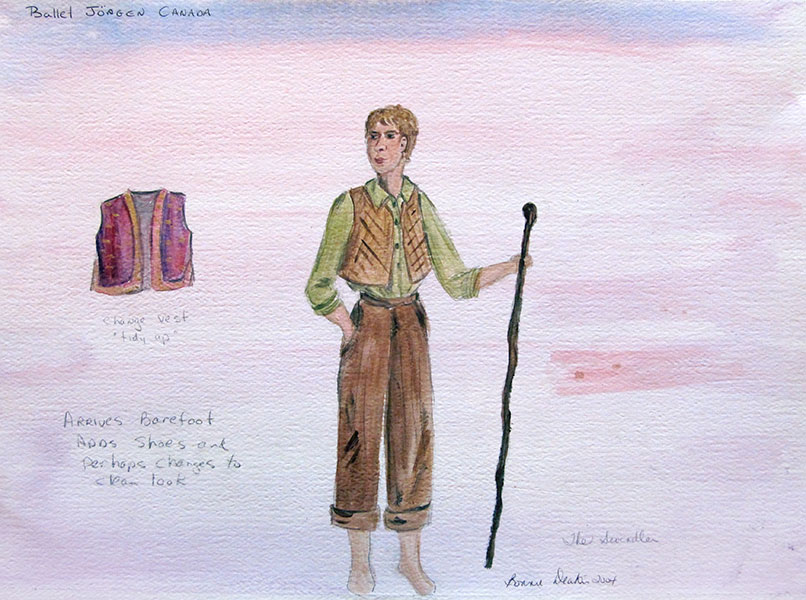 Ballet JÖRGEN CANADA
change vest
"tidy up"
ARRIVES Barefoot
ADDS Shoes and
perhaps changes to
clean look
The
Bonnie Deakin